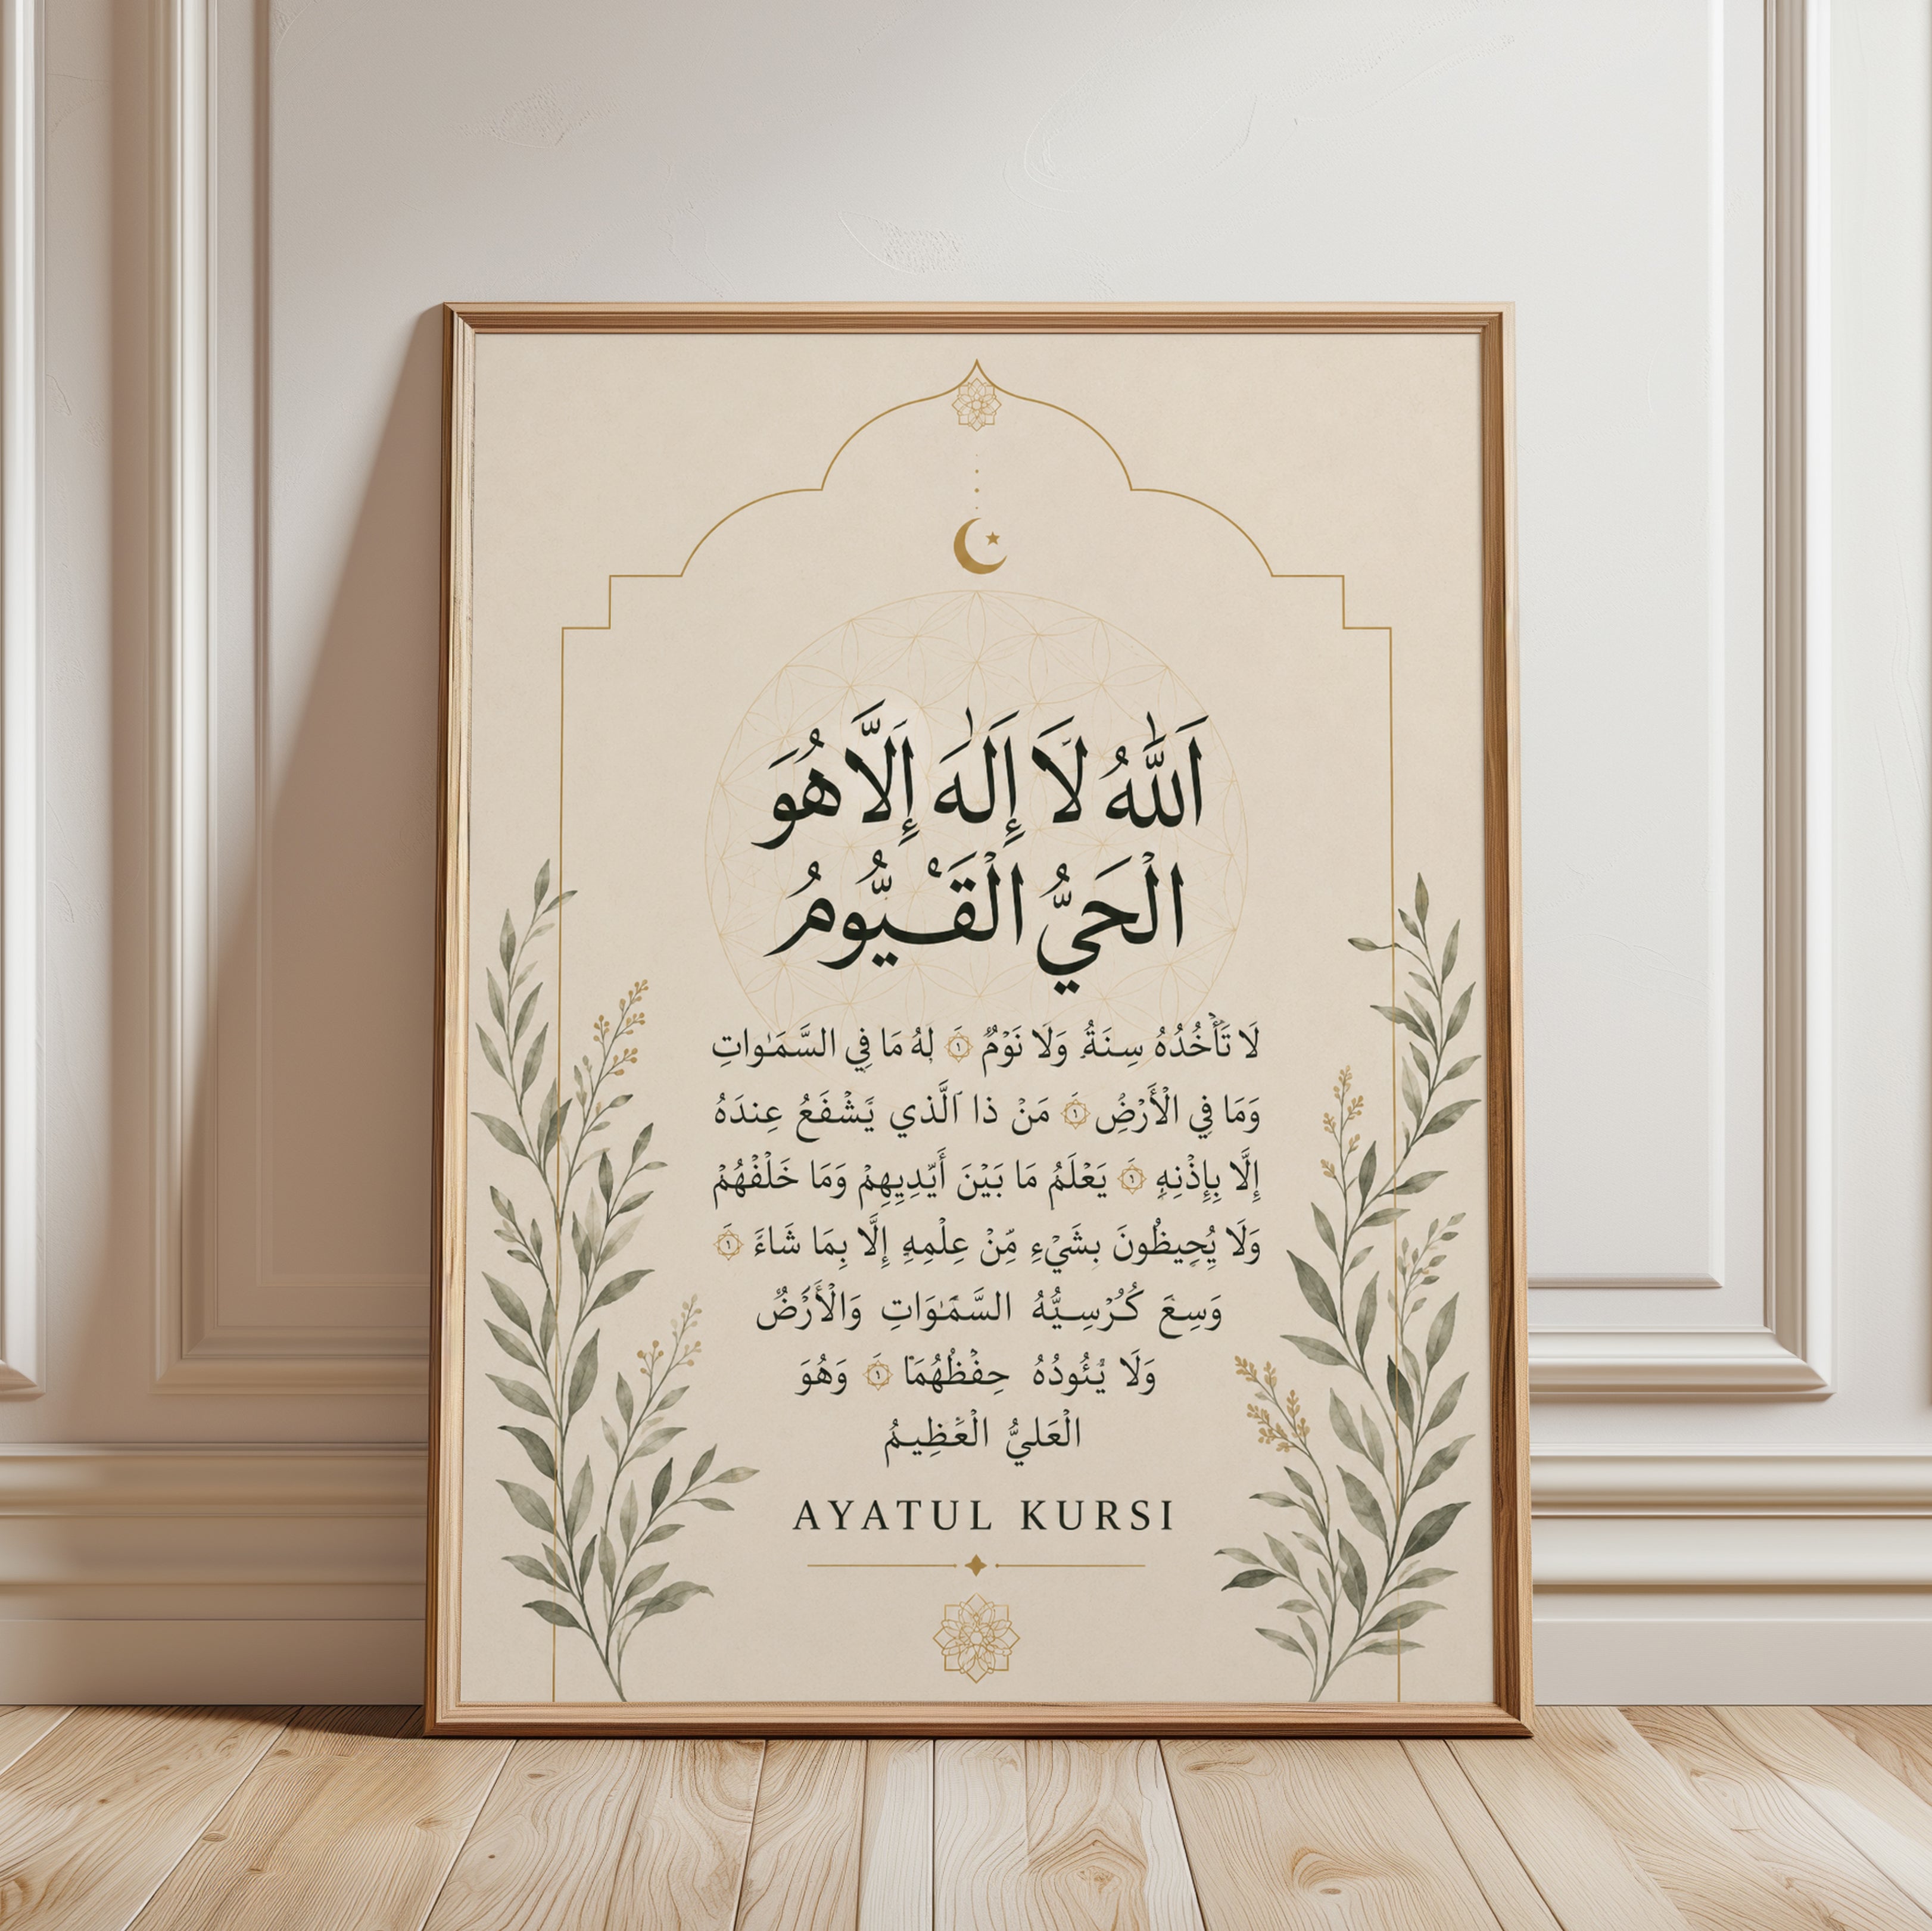 اَللّٰهُ لَا إِلٰهَ إِلَّا هُوَ
الْحَيُّ الْقَيُّومُ
لَا تَأْخُدُهُ سِنَةُ وَلَا نَوْمُ ۝١ لَهُ مَا فِي السَّمٰواتِ
وَمَا فِي الْأَرْضِ ۝١ مَنْ ذا الَّذي يَشْفَعُ عِندَهُ
إِلَّا بِإِذْنِهِ ۝١ يَعْلَمُ مَا بَيْنَ أَيّدِيهِمْ وَمَا خَلْفْهُمْ
وَلَا يُحِيظُونَ بِشَيْءِ مِّنْ عِلْمِهِ إِلَّا بِمَا شَاءَ ۝١
وَسِعَ كُرْسِيُّهُ السَّمٰوَاتِ وَالْأَرْضُ
وَلَا يُئُودُهُ حِفْظُهُمَا ۝١ وَهُوَ
الْعَليُّ الْعَظِيمُ
AYATUL KURSI